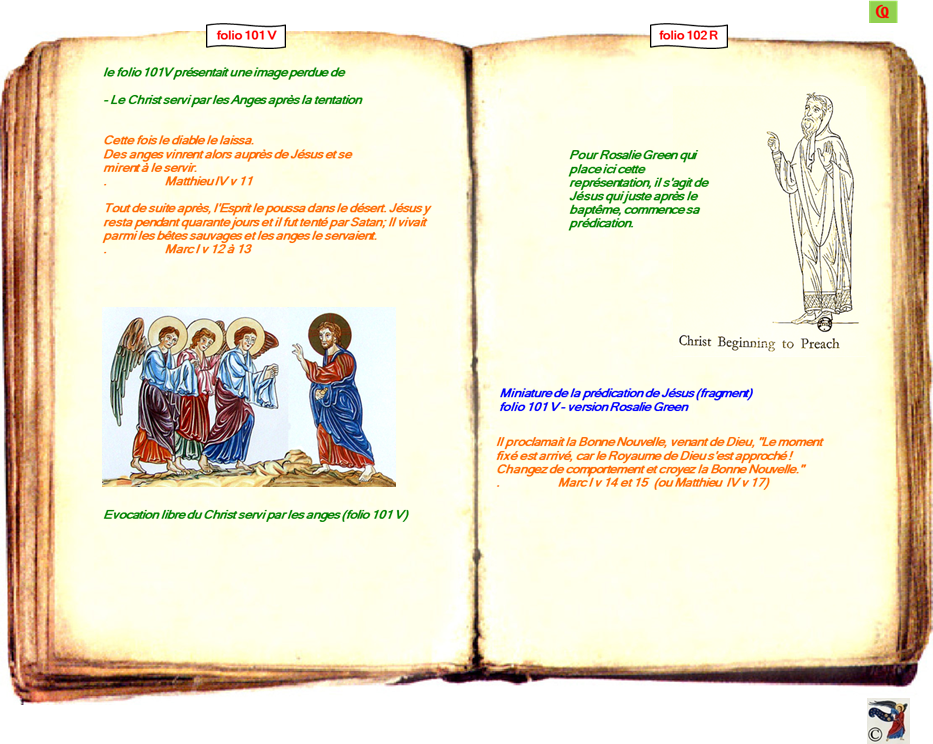 folio 101 V
le folio 101V présentait une image perdue de
- Le Christ servi par les Anges après la tentation
Cette fois le diable le laissa.
Des anges vinrent alors auprès de Jésus et se
mirent à le servir.
. Matthieu IV v 11
Tout de suite après, l'Esprit le poussa dans le désert. Jésus y
resta pendant quarante jours et il fut tenté par Satan; Il vivait
parmi les bêtes sauvages et les anges le servaient.
. Marc I v 12 à 13
Evocation libre du Christ servi par les anges (folio 101 V)
folio 102 R
Pour Rosalie Green qui
place ici cette
représentation, il s'agit de
Jésus qui juste après le
baptême, commence sa
prédication.
Christ Beginning to Preach
Miniature de la prédication de Jésus (fragment)
folio 101 V - version Rosalie Green
Il proclamait la Bonne Nouvelle, venant de Dieu, "Le moment
fixé est arrivé, car le Royaume de Dieu s'est approché !
Changez de comportement et croyez la Bonne Nouvelle."
. Marc I v 14 et 15 (ou Matthieu IV v 17)
©